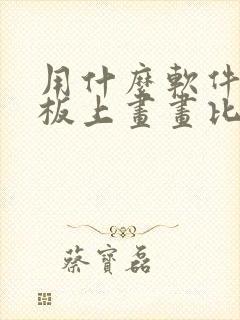 用什麼軟件
板上畫畫比
蔡寶磊